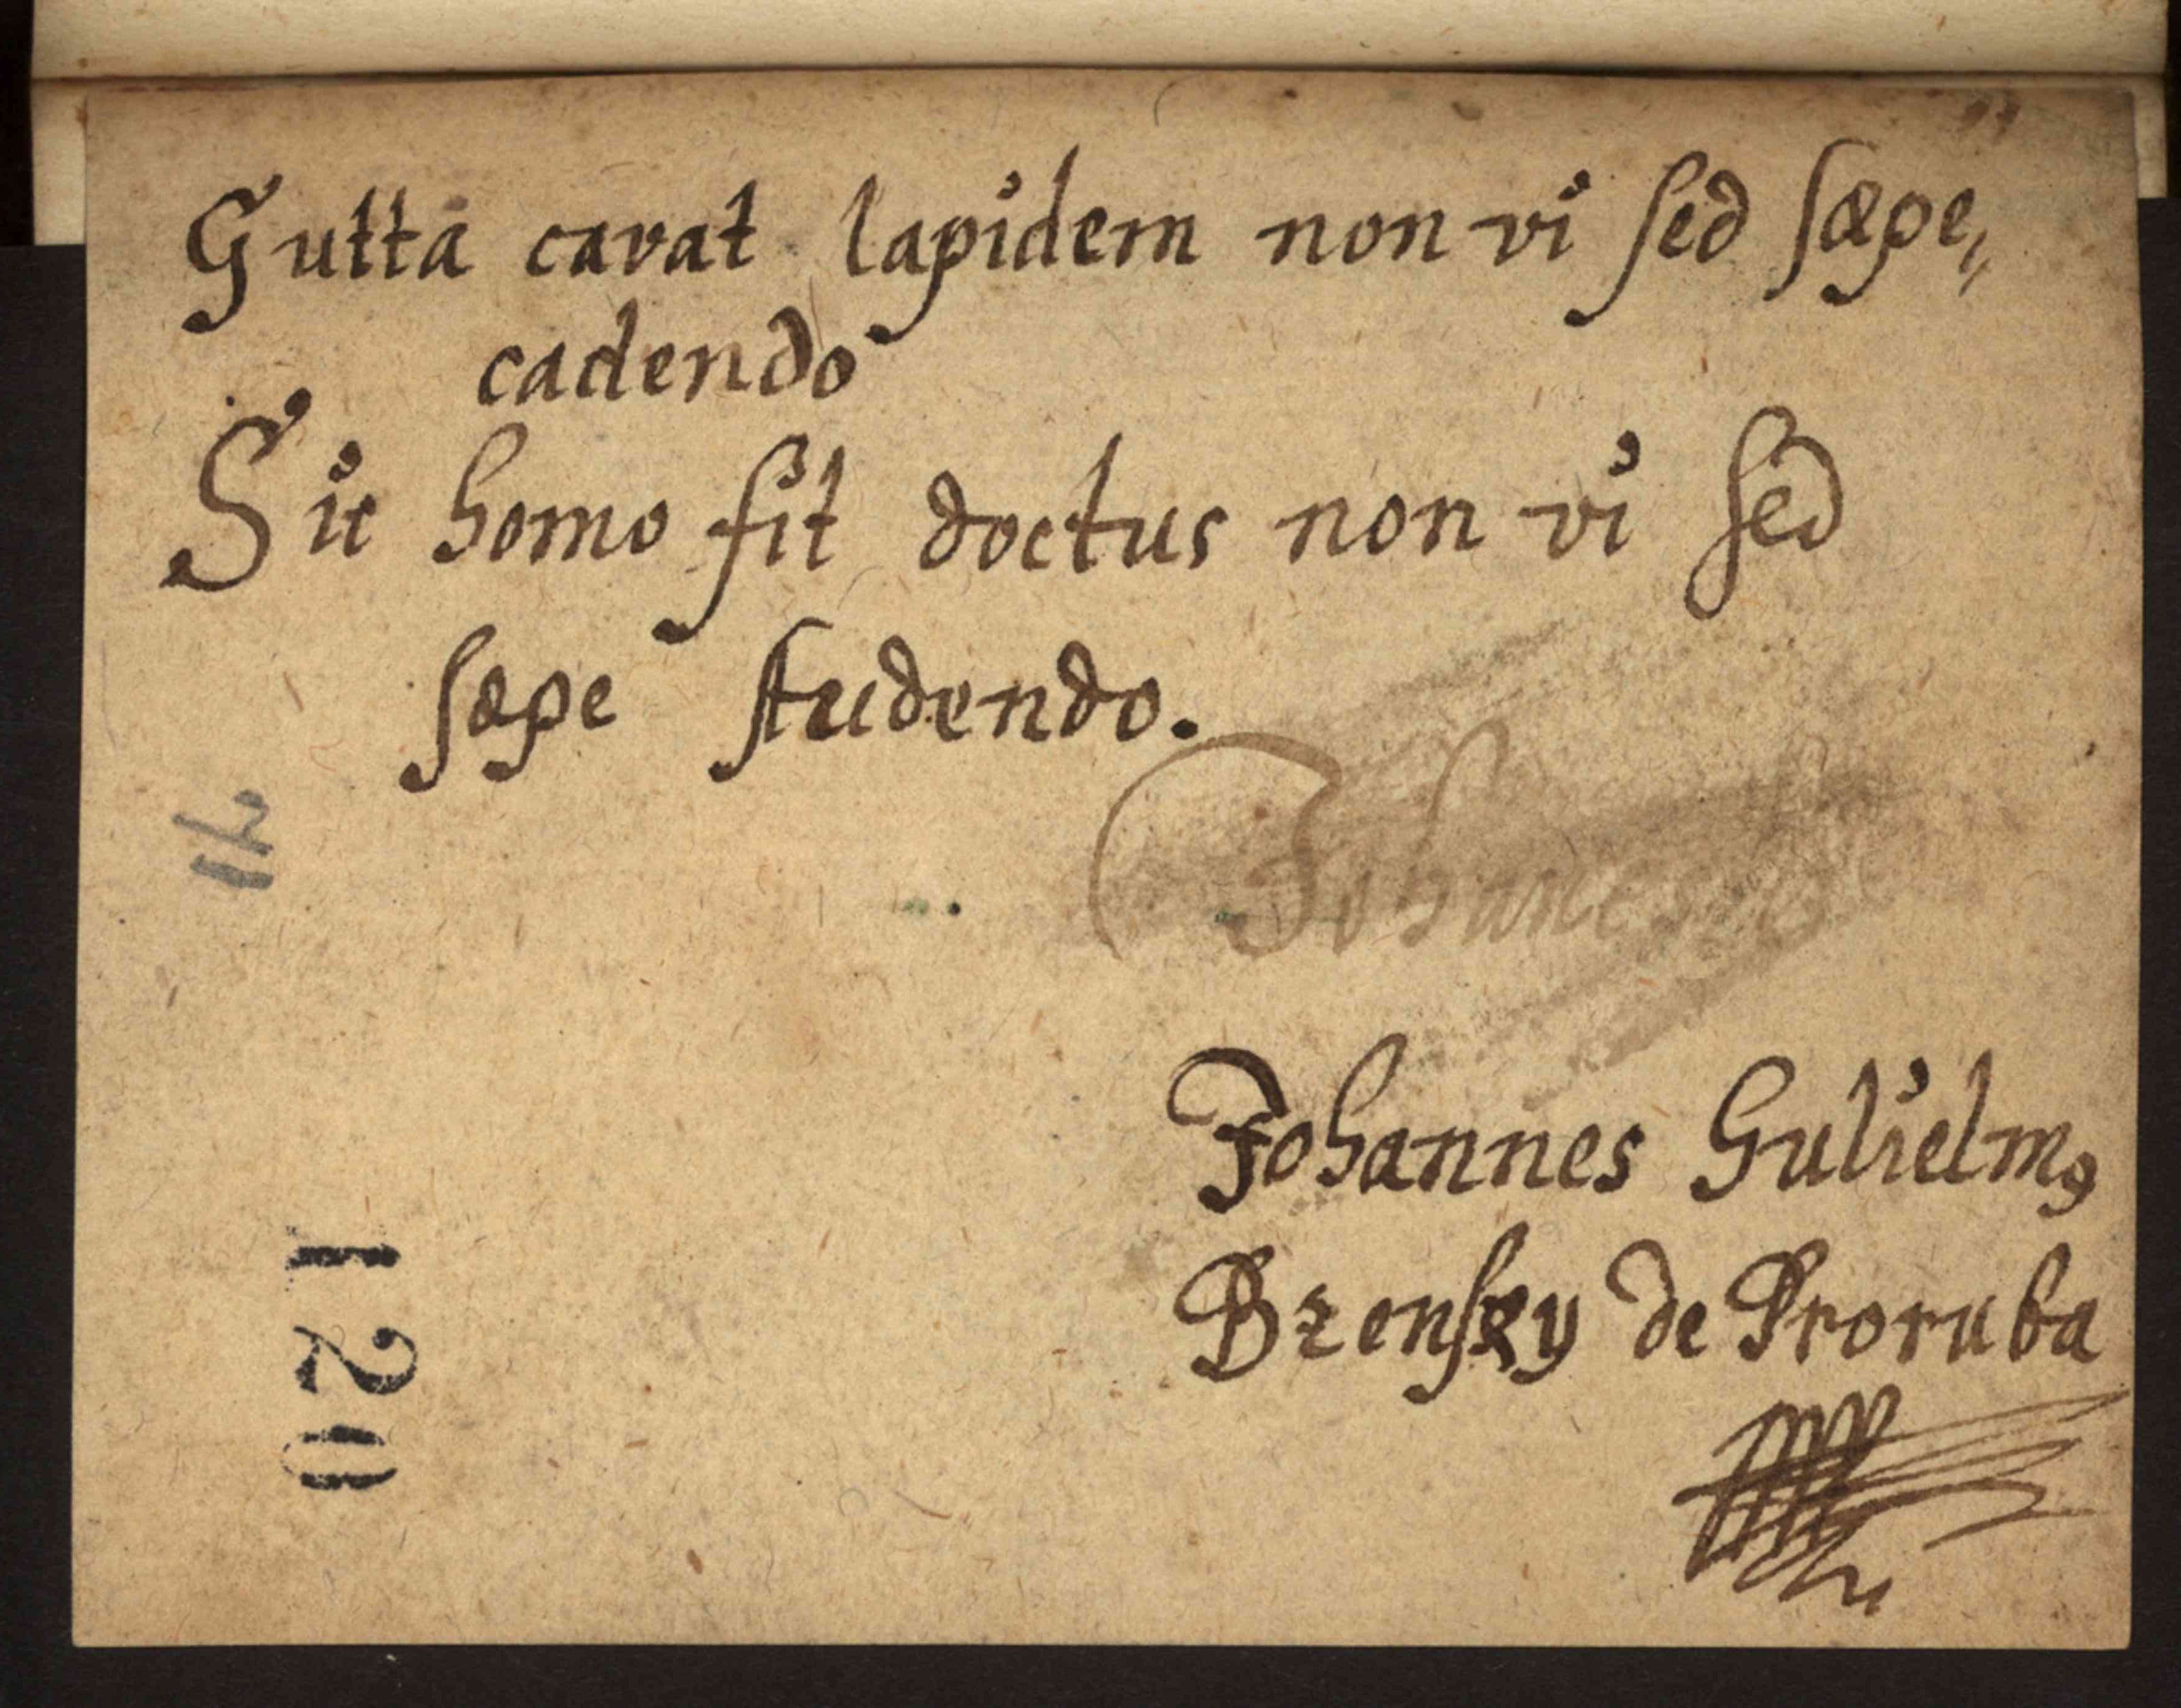 Gutta cavat lapidem non vi ſed ſæpe,,
cadendo
Sic homo fit doctus non vi ſed
ſæpe ſtudendo.
Johannes
Johannes Gulielmꝰ
Brenſky de Proruba
12
120